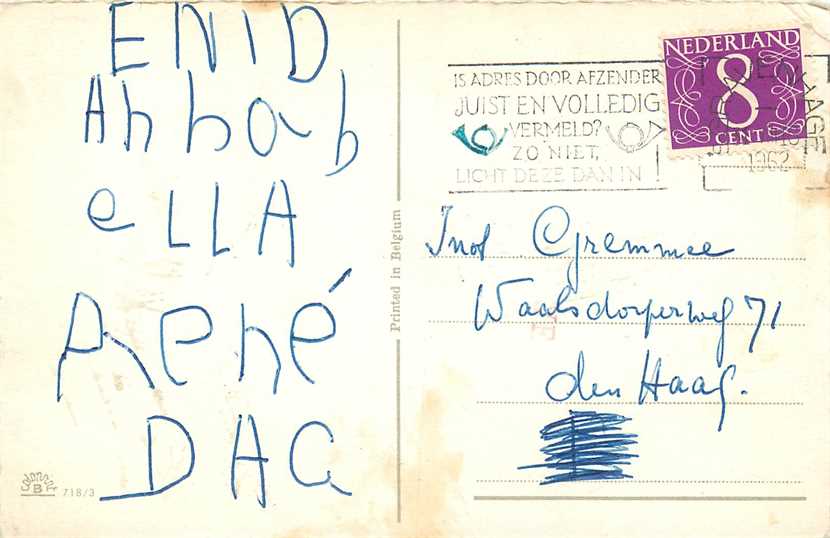 ENID
Ahhab
eLLA
René
DAG
Printed in Belgium
COLORPRINT
B
718/3
IS ADRES DOOR AFZENDER
JUIST EN VOLLEDIG
VERMELD?
ZO NIET,
LICHT DEZE DAN IN!
NEDERLAND
8
CENT
'S-GRAVENHAGE
1962
Gremmee
Waalsdorperweg 71
den Haag.